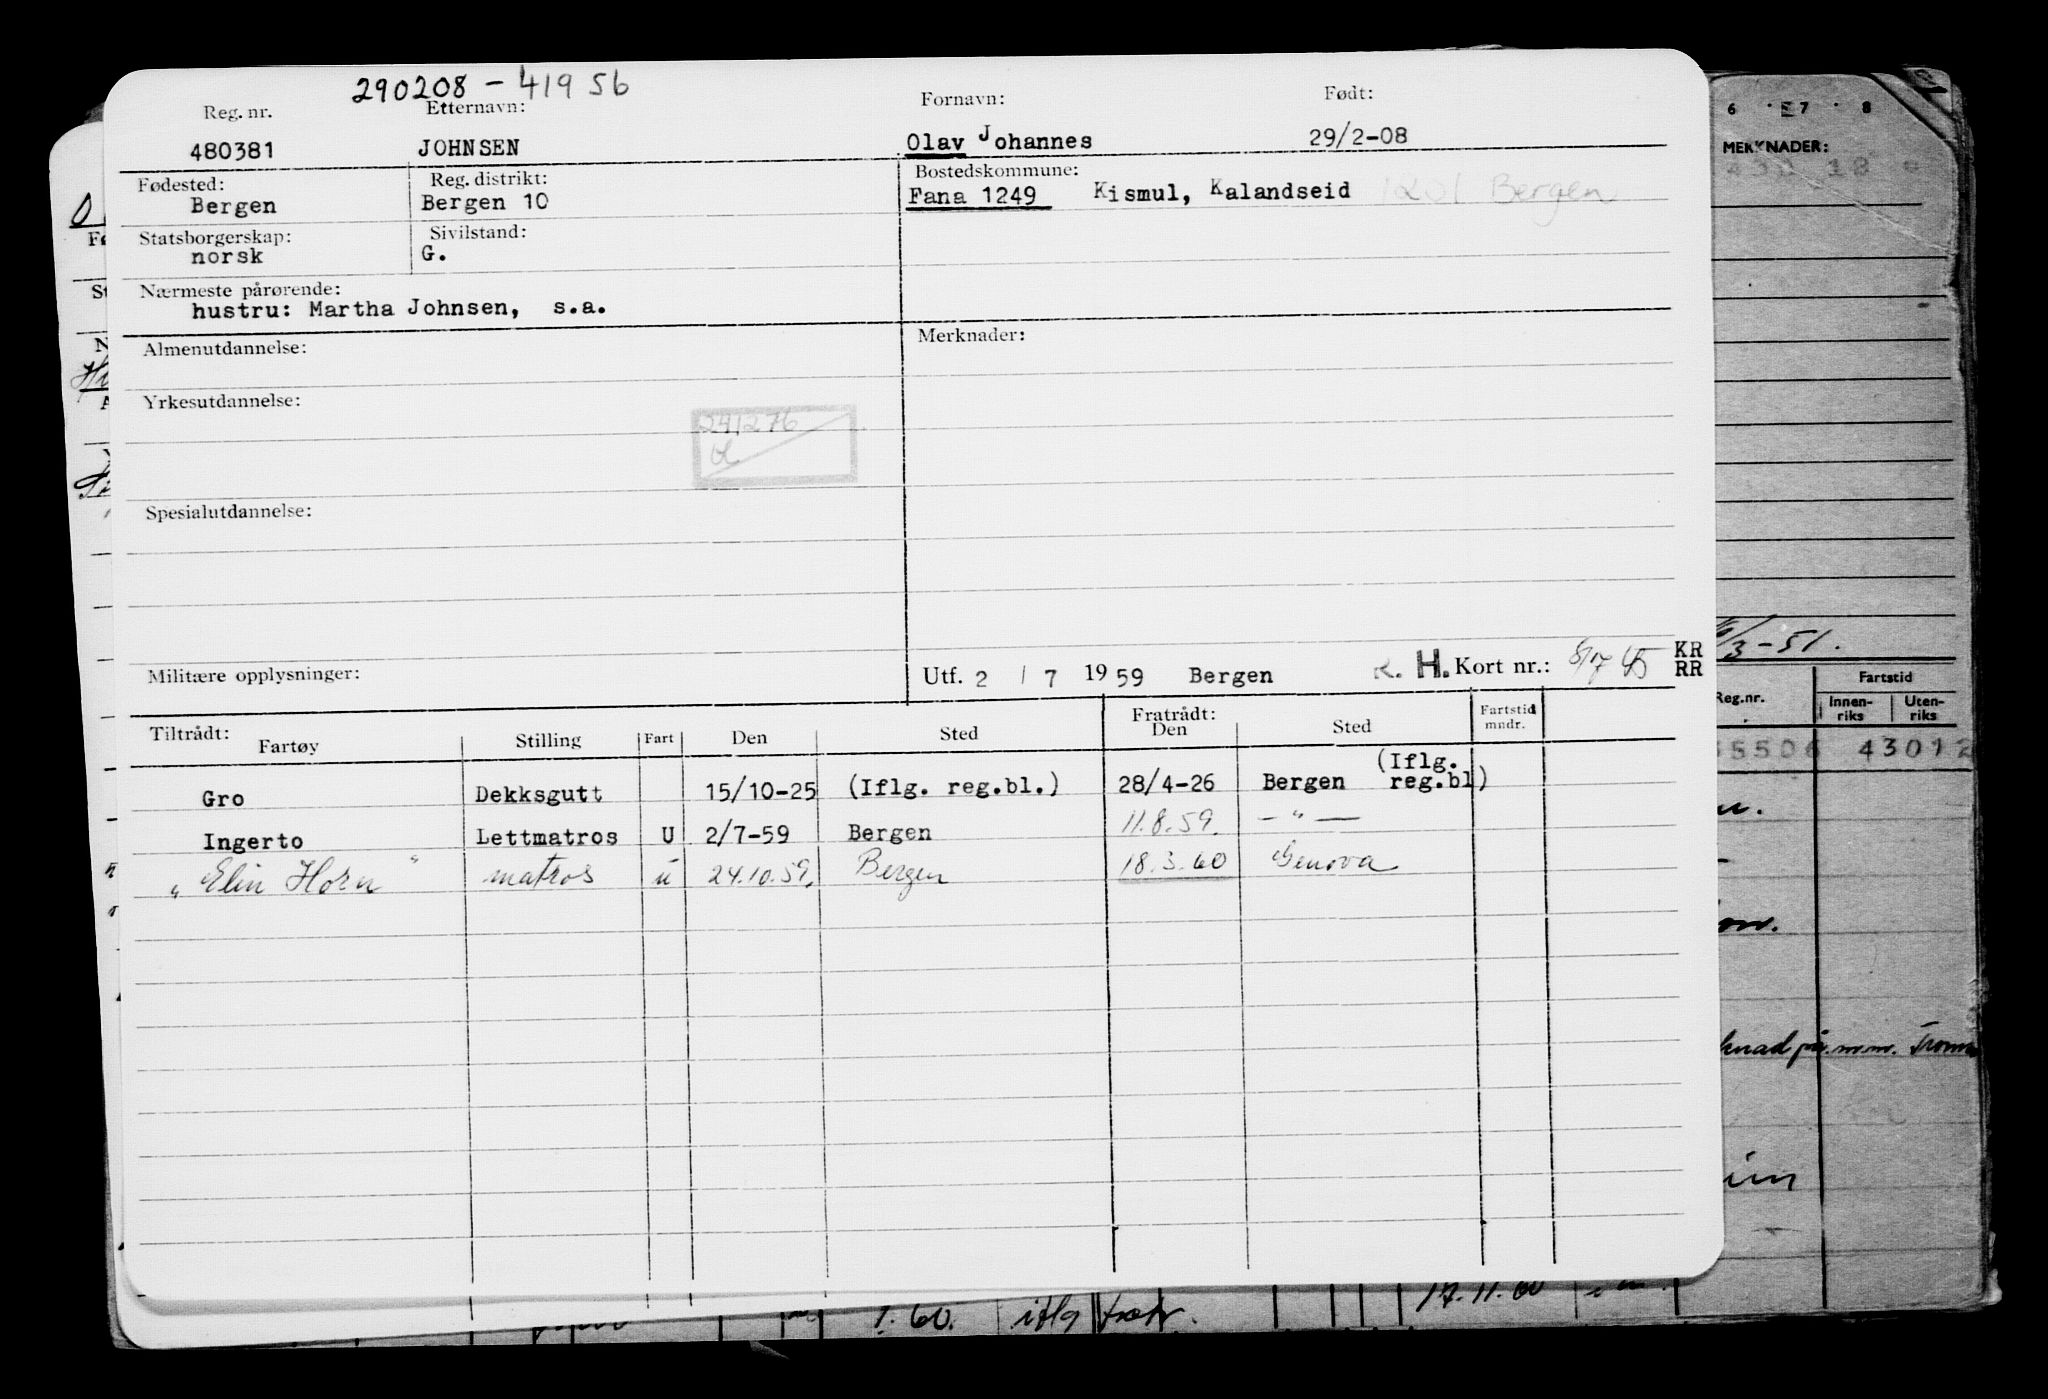 290208 - 41956
Reg. nr. Etternavn: Fornavn: Født:
480381 JOHNSEN Olav Johannes 29/2-08
Fødested: Reg. distrikt: Bostedskommune:
Bergen Bergen 10 Fana 1249 Kismul, Kalandseid 1201 Bergen
Statsborgerskap: Sivilstand:
norsk G.
Nærmeste pårørende:
hustru: Martha Johnsen, s.a.
Almenutdannelse: Merknader:
Yrkesutdannelse:
241276
Spesialutdannelse:
Militære opplysninger: Utf. 2 / 7 1959 Bergen H. Kort nr.: KR
RR
Tiltrådt: Fratrådt:
Fartøy Stilling Fart Den Sted Den Sted Fartstid
mndr.
Gro Dekksgutt 15/10-25 (Iflg. reg.bl.) 28/4-26 Bergen (Iflg.
reg.bl)
Ingerto Lettmatros U 2/7-59 Bergen 11.8.59. — " —
„ Elin Horn " matros u 24.10.59. Bergen 18.3.60 Genova
6 7 8
MERKNADER:
/3-51.
Reg.nr. Fartstid
Innen-
riks Uten-
riks
5506 43012
1.60. iflg 17.11.60